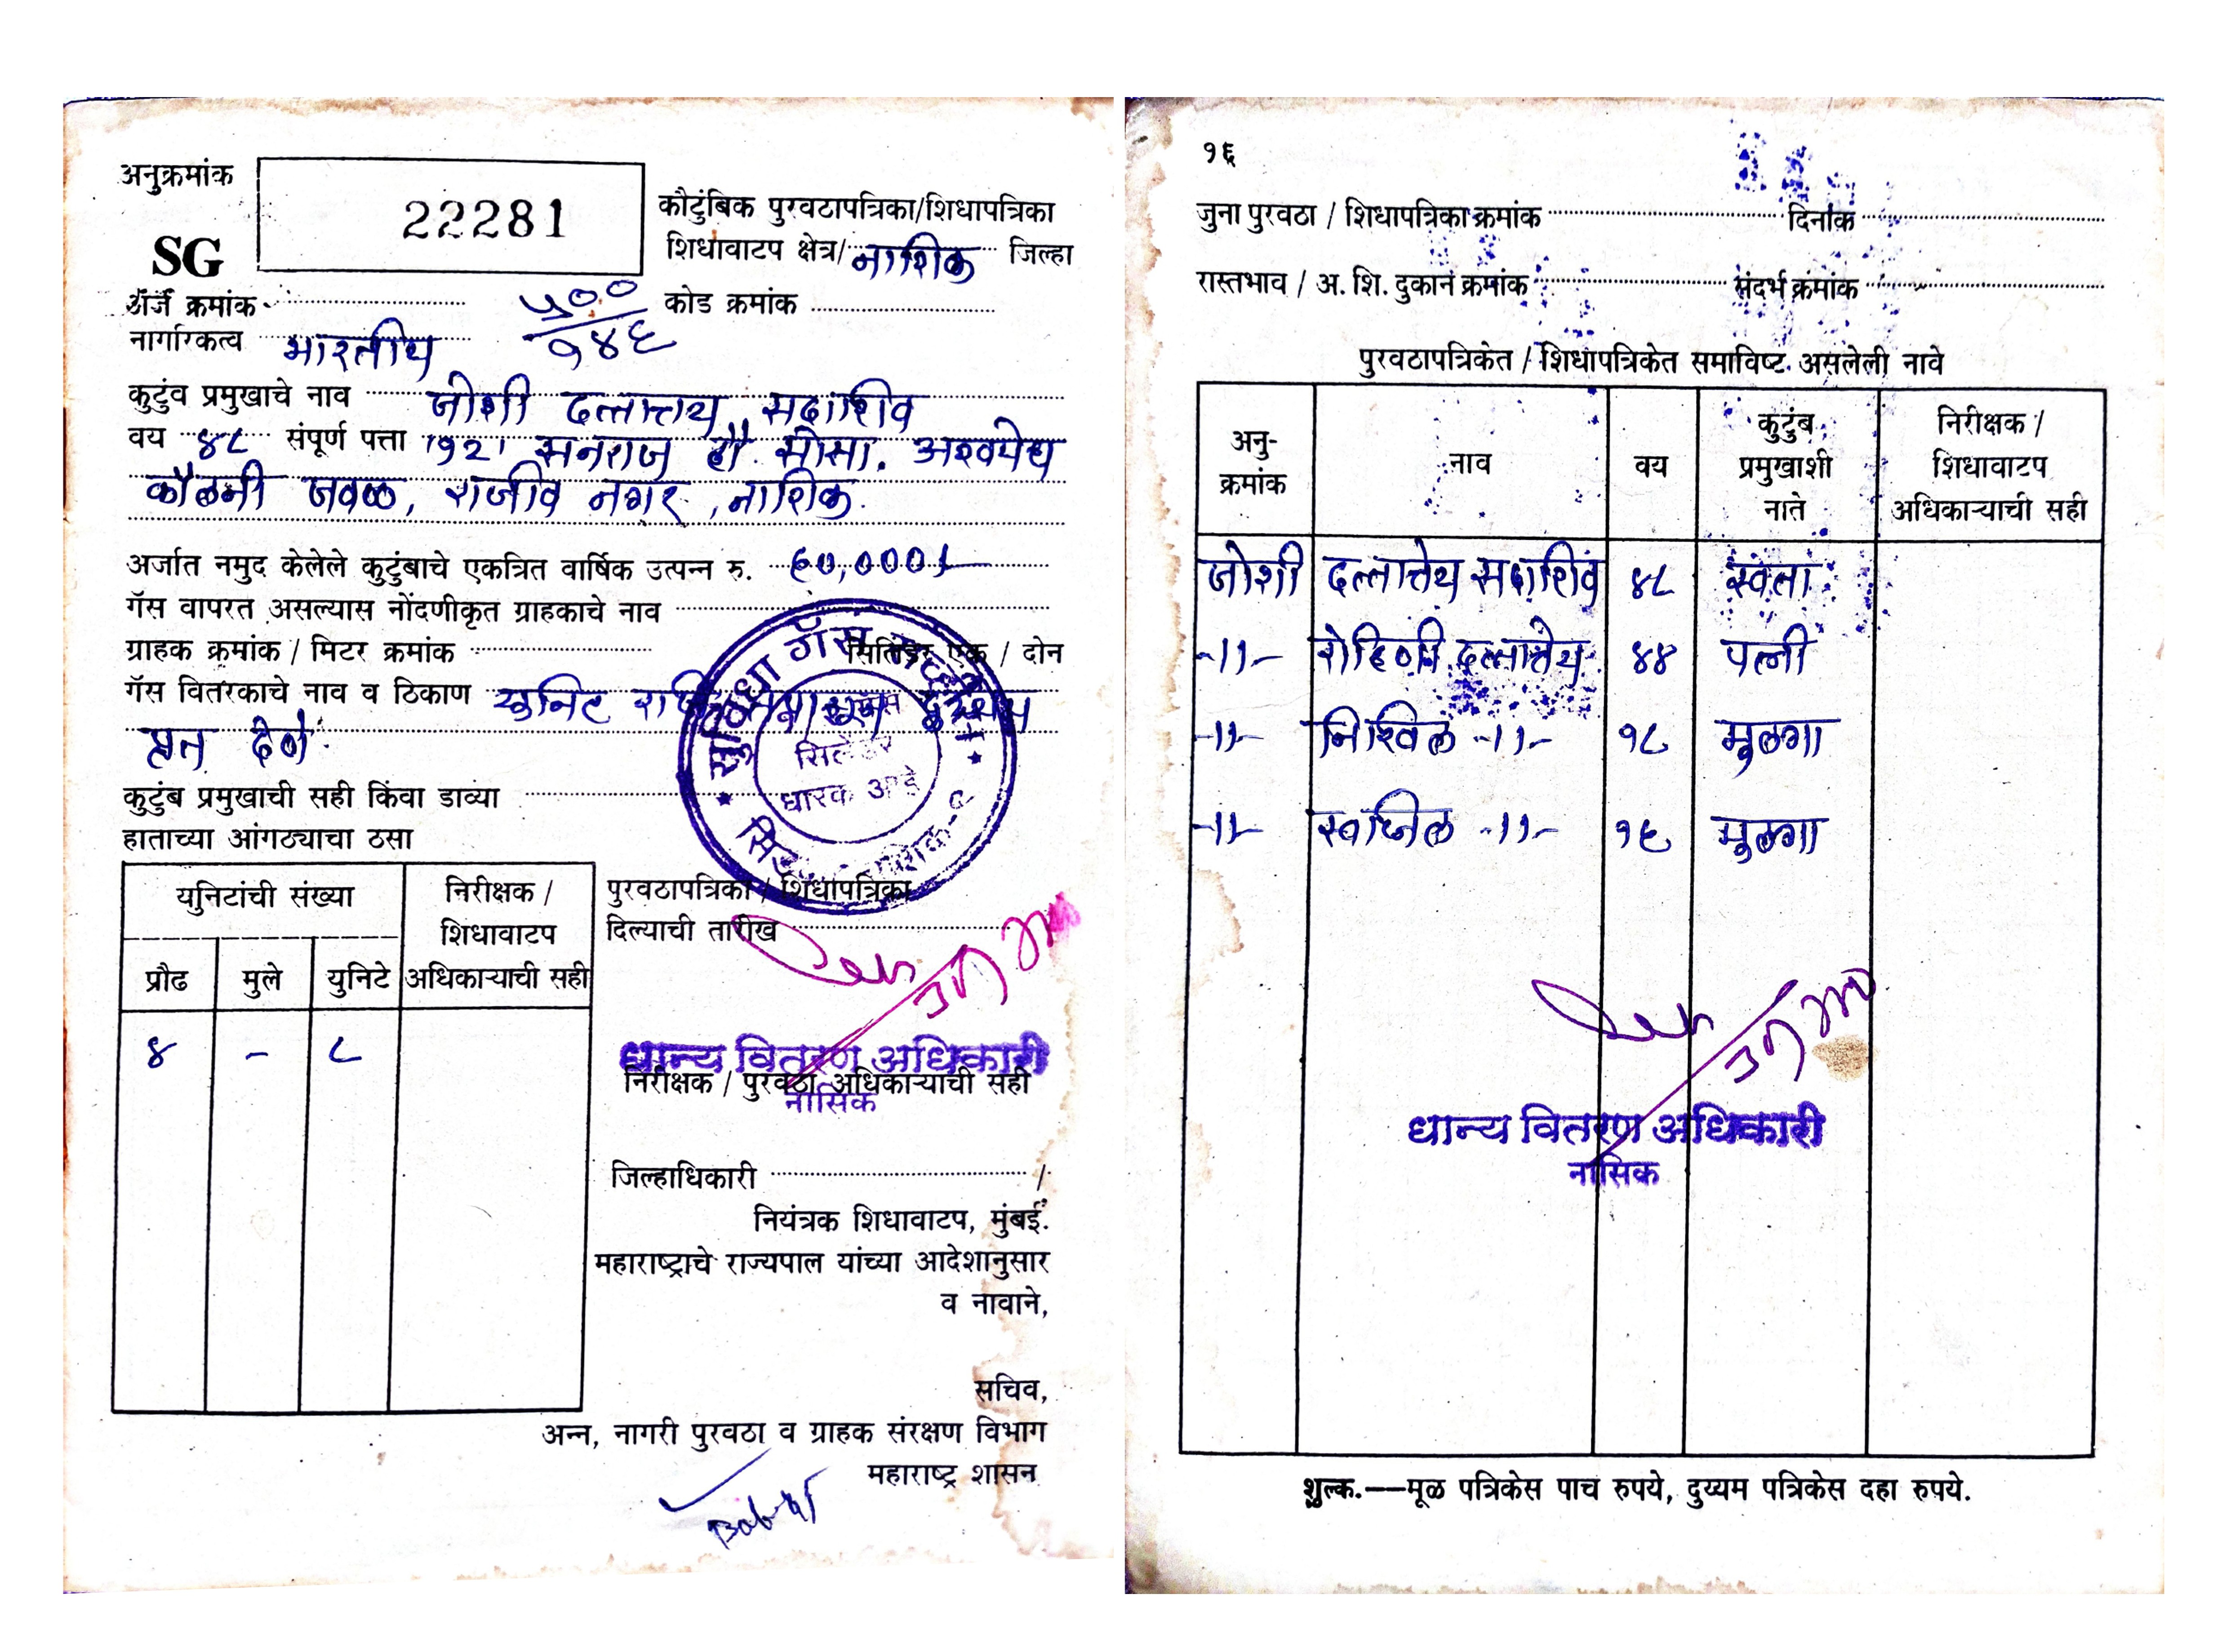 अनुक्रमांक
22281
SG
कौटुंबिक पुरवठापत्रिका/शिधापत्रिका
शिधावाटप क्षेत्र/ नाशिक जिल्हा
अर्ज क्रमांक
५००
१४६
कोड क्रमांक
नागरिकत्व भारतीय
कुटुंब प्रमुखाचे नाव जोशी दत्तात्तय सदाशिव
वय ४८ संपूर्ण पत्ता 1921 सनराज हौ. सोसा. अश्वमेध
कौलनी जवळ, राजीव नगर, नाशिक.
अर्जात नमुद केलेले कुटुंबाचे एकत्रित वार्षिक उत्पन्न रु. ६०,०००/-
गॅस वापरत असल्यास नोंदणीकृत ग्राहकाचे नाव
ग्राहक क्रमांक / मिटर क्रमांक सिलिंडर एक / दोन
गॅस वितरकाचे नाव व ठिकाण युनिट
सिलेंडर
धारक आहे
कुटुंब प्रमुखाची सही किंवा डाव्या
हाताच्या आंगठ्याचा ठसा
युनिटांची संख्या
निरीक्षक /
शिधावाटप
अधिकाऱ्याची सही
प्रौढ मुले युनिटे
४ - ८
पुरवठापत्रिका / शिधापत्रिका
दिल्याची तारीख
धान्य वितरण अधिकारी
निरीक्षक / पुरवठा अधिकाऱ्याची सही
नासिक
जिल्हाधिकारी /
नियंत्रक शिधावाटप, मुंबई.
महाराष्ट्राचे राज्यपाल यांच्या आदेशानुसार
व नावाने,
सचिव,
अन्न, नागरी पुरवठा व ग्राहक संरक्षण विभाग
महाराष्ट्र शासन
१६
जुना पुरवठा / शिधापत्रिका क्रमांक दिनांक
रास्तभाव / अ. शि. दुकान क्रमांक संदर्भ क्रमांक
पुरवठापत्रिकेत / शिधापत्रिकेत समाविष्ट असलेली नावे
अनु-
क्रमांक
नाव
वय
कुटुंब
प्रमुखाशी
नाते
निरीक्षक /
शिधावाटप
अधिकाऱ्याची सही
जोशी दत्तात्तेय सदाशिव ४८ स्वता
-11- रोहिणी दत्तात्तेय ४४ पत्नी
-11- निखिल -11- १८ मुलगा
-11- स्वप्निल -11- १६ मुलगा
धान्य वितरण अधिकारी
नासिक
शुल्क.—मूळ पत्रिकेस पाच रुपये, दुय्यम पत्रिकेस दहा रुपये.